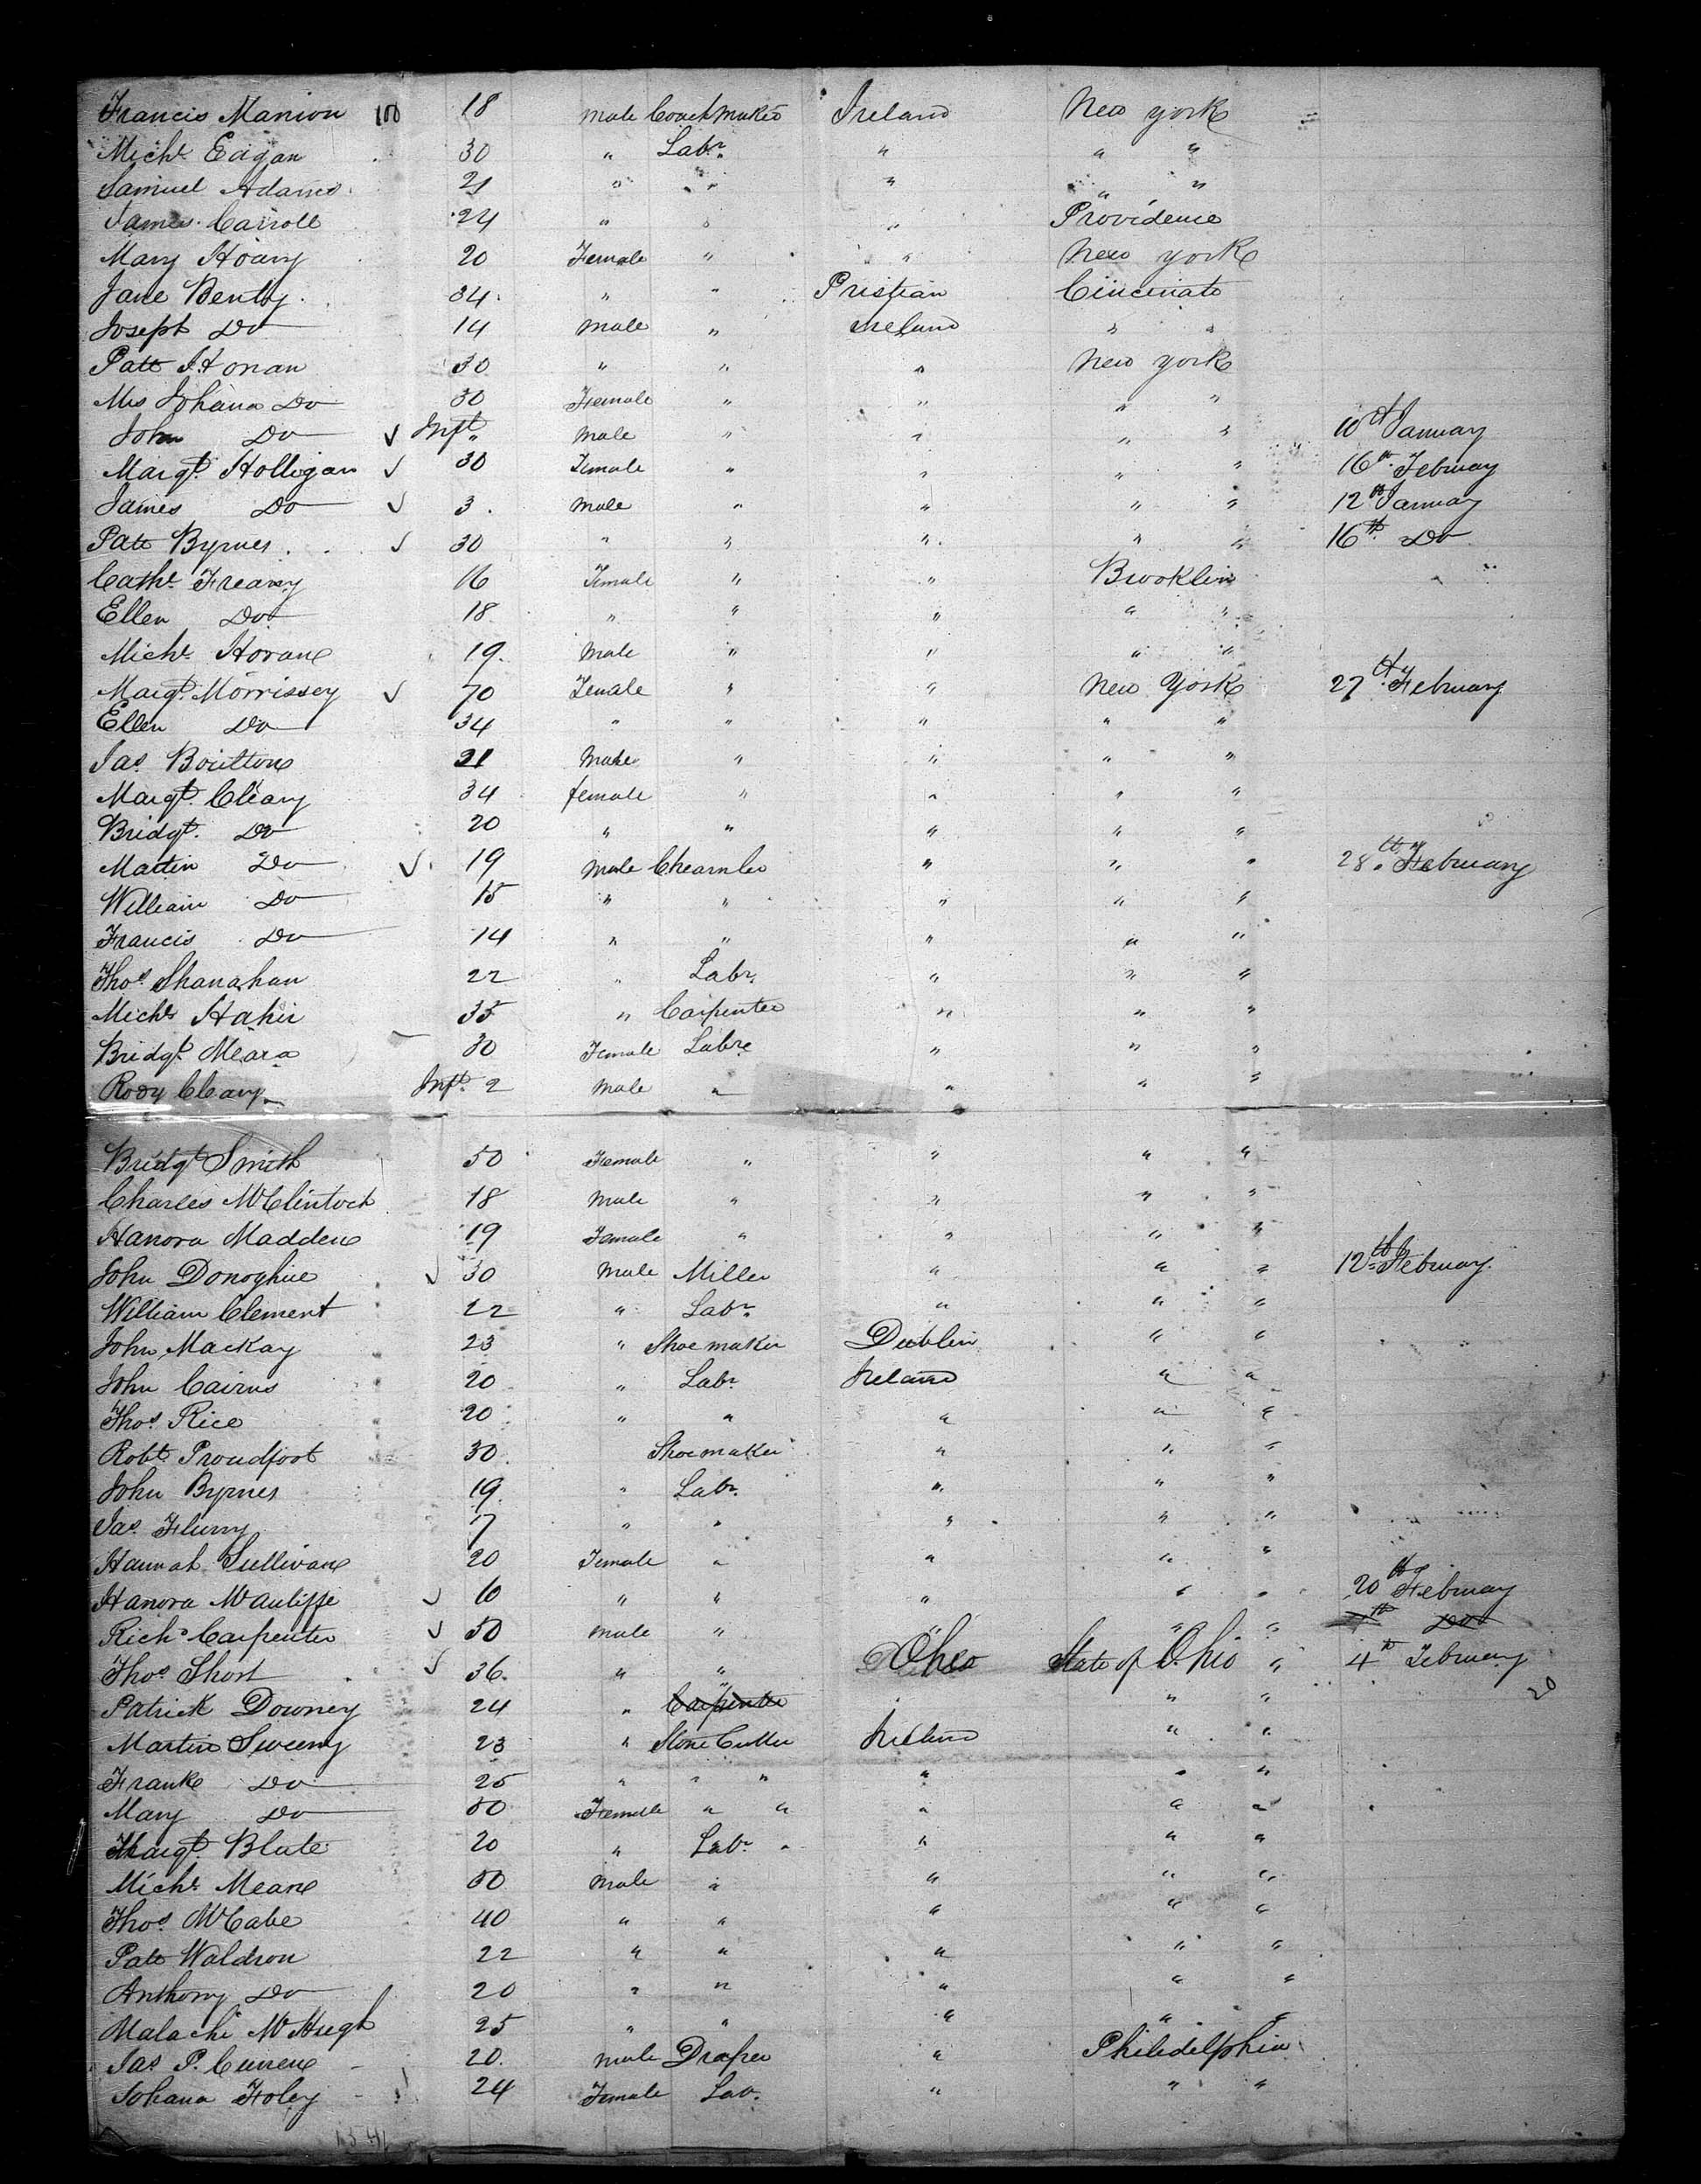 Francis Manion 100 18 male Coachmaker Ireland New york
Michl. Eagan 30 " Labr. " " "
Samuel Adams 21 " " " " "
James Carroll 24 " " " Providence
Mary Hoary 20 Female " " New york
Jane Bently 34 " " Cincinato
Joseph Do 14 male " Ireland " "
Patt Honan 30 " " " New york
Mrs Johana Do 30 Female " " " "
John Do Inft. male " " " " 10th January
Margt. Holligan 30 Female " " " " 16th February
James Do 3 male " " " " 12th January
Patt Byrnes 30 " " " " " 16th Do
Cathe. Freary 16 Female " " Brooklin
Ellen Do 18 " " " " "
Michl. Horane 19 male " " " "
Margt. Morrissey 70 Female " " New York 27th February
Ellen Do 34 " " " " "
Jas. Boultone 21 male " " " "
Margt. Cleary 34 female " " " "
Bridgt. Do 20 " " " " "
Martin Do 19 male " " " 28th February
William Do 15 " " " " "
Francis Do 14 " " " " "
Thos. Shanahan 22 " Labr. " " "
Michl. Hahir 35 " Carpenter " " "
Bridgt. Meara 30 Female Labre " " "
Rody Cleary Inft. 2 male " " " "
Bridgt Smith 50 Female " " " "
Charles McClintock 18 male " " " "
Hanora Maddene 19 Female " " " "
John Donoghue 30 male Miller " " " 12th February
William Clement 22 " Labr. " " "
John Mackay 23 " Shoemaker Dublin " "
John Cairns 20 " Labr. Ireland " "
Thos. Rice 20 " " " " "
Robt. Proudfoot 30 Shoemaker " " "
John Byrnes 19 " Labr. " " "
Jas. Flurry 17 " " " " "
Hannah Sullivane 20 Female " " " "
Hanora McAuliffe 10 " " " " " 20th February
Richd. Carpenter 50 male " " " " th Do
Thos. Short 36 " " Ohio State of Ohio " 4th February
Patrick Downey 24 " Carpenter " " 20
Martin Sweeny 23 " Stone Cutter Ireland " "
Frank Do 25 " " " " " "
Mary Do 50 Female " " " " "
Margt. Blute 20 " Labr. " " "
Michl. Meane 50 male " " " "
Thos. McCabe 40 " " " " "
Patt Waldron 22 " " " " "
Anthony Do 20 " " " " "
Malachi McHugh 25 " " " " "
Jas. P. Currene 20 male Draper " Philidelphia
Johana Foley 24 Female Lab. " " "